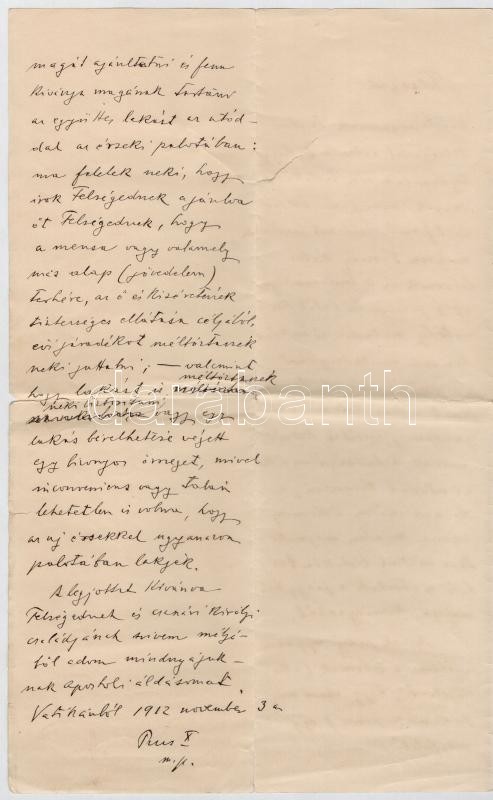 magát ajánltatni és fenn
kivánja magának tartani
az együttes lakást az utód-
dal az érseki palotában:
ma felelek neki, hogy
irok Felségednek ajánlva
őt Felségednek, hogy
a mensa vagy valamely
más alap (jövedelem)
terhére, az ő és kiséretének
tisztességes ellátása céljából,
évi járadékot méltóztassék
neki juttatni; — valamint
méltóztassék
hogy lakást is
neki biztositani
vagy egy
lakás bérelhetése végett
egy bizonyos összeget, mivel
inconveniens vagy talán
lehetetlen is volna, hogy
az uj érsekkel ugyanazon
palotában lakjék.
A legjobbat kivánva
Felségednek és császári királyi
családjának szivem mélyé-
ből adom mindnyájuk-
nak apostoli áldásomat.
Vatikánból 1912 november 3 án
Pius X
m.p.
darabanth